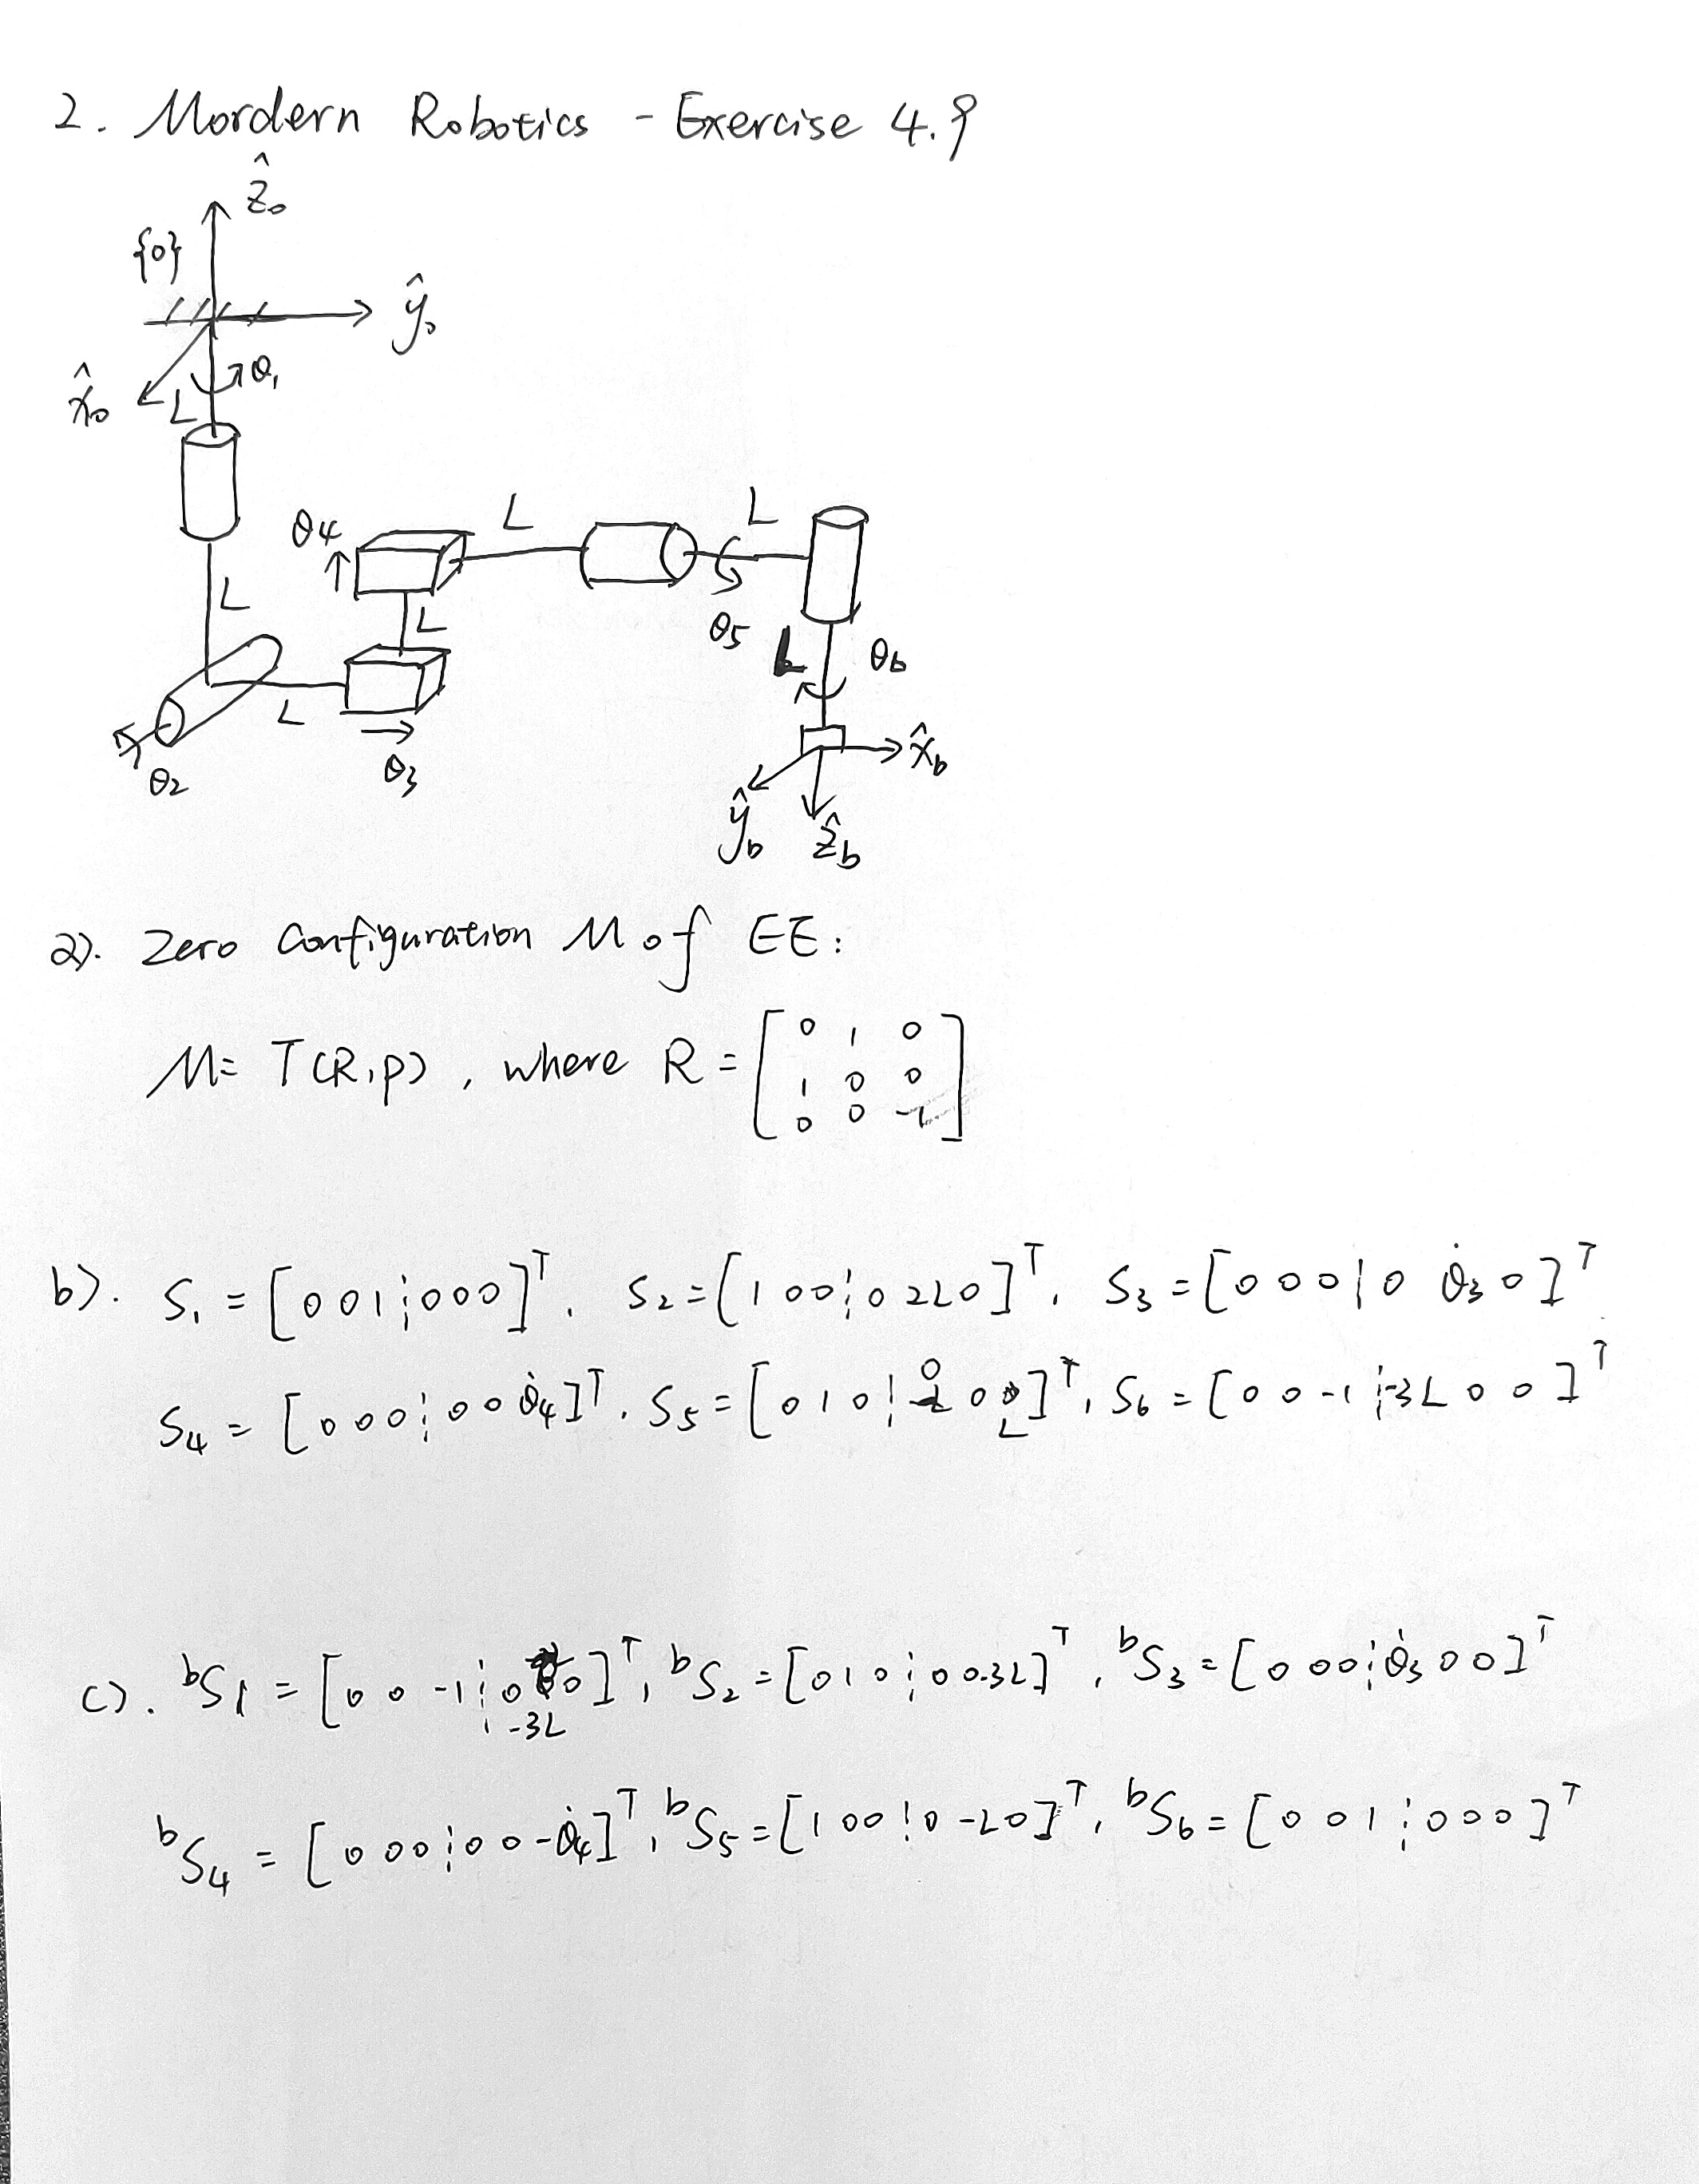 2. Mordern Robotics - Exercise 4.9
ẑ₀
{0}
ŷ₀
θ₁
x̂₀
L
θ4
L
L
L
L
θ5
L
θ6
L
θ2
θ3
x̂b
ŷb ẑb
a). Zero Configuration M of EE:
M = T(R,p), where R = [0 1 0; 1 0 0; 0 0 -1]
b). S₁ = [0 0 1 ¦ 0 0 0]ᵀ. S₂ = [1 0 0 ¦ 0 2L 0]ᵀ. S₃ = [0 0 0 | 0 θ̇₃ 0]ᵀ
S₄ = [0 0 0 ¦ 0 0 θ̇₄]ᵀ. S₅ = [0 1 0 ¦ 0 0 L]ᵀ, S₆ = [0 0 -1 ¦ -3L 0 0]ᵀ
c). ᵇS₁ = [0 0 -1 ¦ 0 -3L 0]ᵀ, ᵇS₂ = [0 1 0 ¦ 0 0 -3L]ᵀ, ᵇS₃ = [0 0 0 ¦ θ̇₃ 0 0]ᵀ
ᵇS₄ = [0 0 0 ¦ 0 0 -θ̇₄]ᵀ, ᵇS₅ = [1 0 0 ¦ 0 -L 0]ᵀ, ᵇS₆ = [0 0 1 ¦ 0 0 0]ᵀ